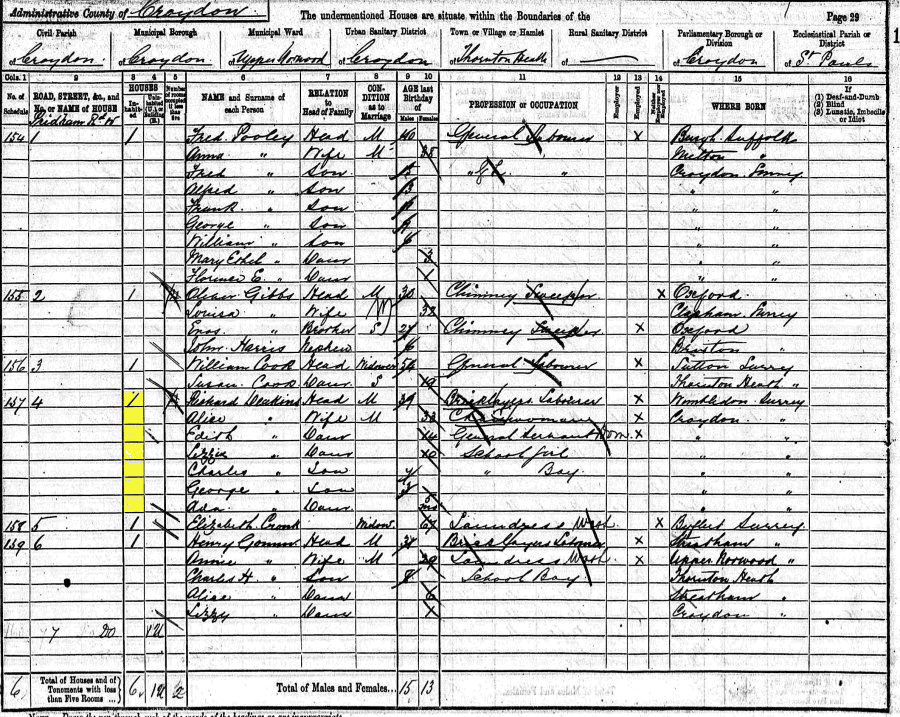 Administrative County of Croydon
The undermentioned Houses are situate within the Boundaries of the
Page 29
Civil Parish
Municipal Borough
Municipal Ward
Urban Sanitary District
Town or Village or Hamlet
Rural Sanitary District
Parliamentary Borough or Division
Ecclesiastical Parish or District
of Croydon
of Croydon
of Upper Norwood
of Croydon
of Thornton Heath
of —
of Croydon
of St Pauls
Cols. 1 2 3 4 5 6 7 8 9 10 11 12 13 14 15 16
No. of Schedule
ROAD, STREET, &c., and No. or NAME of HOUSE
HOUSES
Inhabited
Uninhabited (U.) or Building (B.)
Number of rooms occupied if less than five
NAME and Surname of each Person
RELATION to Head of Family
CONDITION as to Marriage
AGE last Birthday of
Males Females
PROFESSION or OCCUPATION
Employer
Employed
WHERE BORN
If
(1) Deaf-and-Dumb
(2) Blind
(3) Lunatic, Imbecile or Idiot
154 1 1 Fred Pooley Head M 40 General Labourer x Burgh Suffolk
Anna " Wife M 35 Melton "
Fred " Son 15 " " Croydon Surrey
Alfred " Son 13 " "
Frank " Son " "
George " Son " "
William " Son 6 " "
Mary Ethel " Daur 3 " "
Florence E. " Daur 1 " "
155 2 1 Gibbs Head M 30 Chimney Sweeper x Oxford
Louisa " Wife M 32 Clapham Surrey
Enos " Brother S 27 Chimney Sweeper x Oxford
John Harris Nephew 6 Brixton "
156 3 1 William Cook Head Widower 54 General Labourer x Sutton Surrey
Susan Cook Daur S 19 Thornton Heath "
157 4 1 Richard Deakins Head M 39 Bricklayers Labourer x Wimbledon Surrey
Alice " Wife M 32 Charwoman x Croydon "
Edith " Daur 14 General Servant Dom x " "
Lizzie " Daur 10 School Girl " "
Charles " Son " Boy " "
George " Son 3 " "
Ada " Daur 5 mo " "
158 5 1 Elizabeth Cronk Widow 67 Laundress Wash x Byfleet Surrey
159 6 1 Henry Head M 31 Bricklayers Labour x Streatham "
Annie " Wife M 29 Laundress Wash x Upper Norwood "
Charles H " Son 8 School Boy Thornton Heath
Alice " Daur 6 Streatham "
Lizzy " Daur 1 Croydon "
7 Do 1U
6 Total of Houses and of Tenements with less than Five Rooms 6 1U 2 Total of Males and Females... 15 13